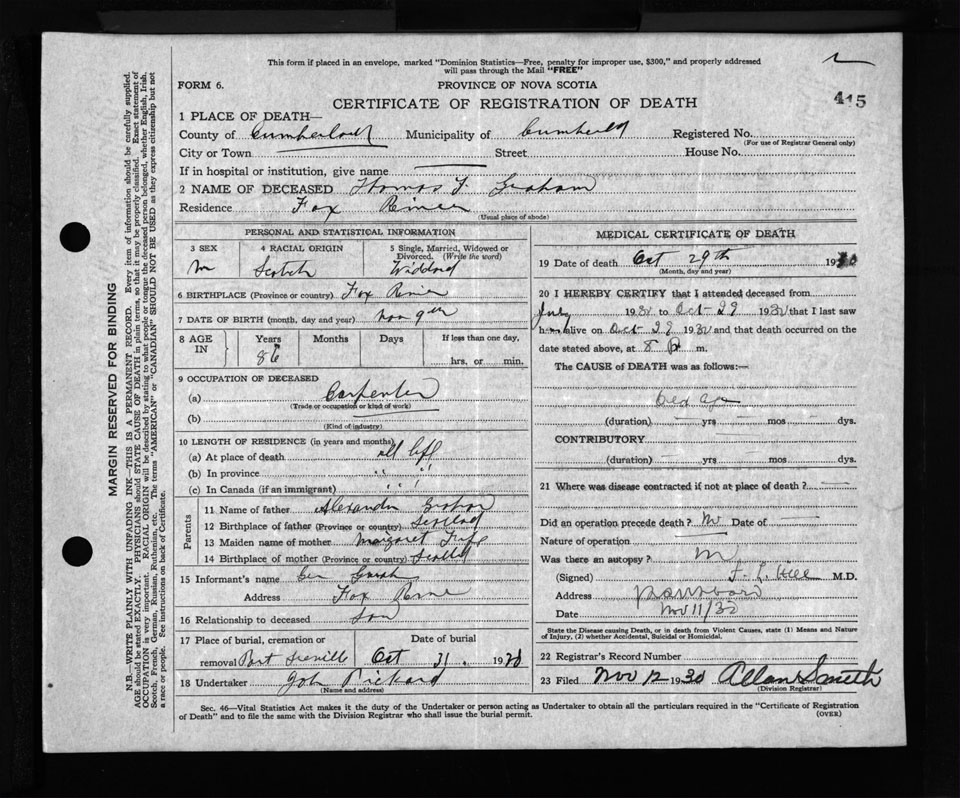 This form if placed in an envelope, marked "Dominion Statistics—Free, penalty for improper use, $300," and properly addressed
will pass through the Mail "FREE"
FORM 6.
PROVINCE OF NOVA SCOTIA
415
CERTIFICATE OF REGISTRATION OF DEATH
1 PLACE OF DEATH—
County of Cumberland Municipality of Cumberld Registered No.
(For use of Registrar General only)
City or Town Street House No.
If in hospital or institution, give name
2 NAME OF DECEASED Thomas Graham
Residence Fox River
(Usual place of abode)
PERSONAL AND STATISTICAL INFORMATION
3 SEX 4 RACIAL ORIGIN 5 Single, Married, Widowed or Divorced. (Write the word)
m Scotch Widowed
6 BIRTHPLACE (Province or country) Fox River
7 DATE OF BIRTH (month, day and year) Nov 9th
8 AGE IN Years Months Days If less than one day.
86 hrs. or min.
9 OCCUPATION OF DECEASED
(a) Carpenter
(Trade or occupation or kind of work)
(b)
(Kind of industry)
10 LENGTH OF RESIDENCE (in years and months)
(a) At place of death all life
(b) In province " "
(c) In Canada (if an immigrant) " "
Parents
11 Name of father Alexander Graham
12 Birthplace of father (Province or country) Scotland
13 Maiden name of mother Margaret
14 Birthplace of mother (Province or country) Scotld
15 Informant's name
Address Fox River
16 Relationship to deceased Son
17 Place of burial, cremation or Date of burial
removal Port Greville Oct 31. 1930
18 Undertaker John Prichard
(Name and address)
MEDICAL CERTIFICATE OF DEATH
19 Date of death Oct 29th 1930
(Month, day and year)
20 I HEREBY CERTIFY that I attended deceased from
July 1930 to Oct-29 1930 that I last saw
him alive on Oct-29 1930 and that death occurred on the
date stated above, at 8 p m.
The CAUSE of DEATH was as follows:—
Old age
(duration) yrs mos dys.
CONTRIBUTORY
(duration) yrs mos dys.
21 Where was disease contracted if not at place of death?
Did an operation precede death? No Date of
Nature of operation
Was there an autopsy? No
(Signed) Hill M.D.
Address Parrsboro
Date Nov 11/30
State the Disease causing Death, or in death from Violent Causes, state (1) Means and Nature
of Injury, (2) whether Accidental, Suicidal or Homicidal.
22 Registrar's Record Number
23 Filed Nov 12 1930 Allan Smith
(Division Registrar)
Sec. 46—Vital Statistics Act makes it the duty of the Undertaker or person acting as Undertaker to obtain all the particulars required in the "Certificate of Registration
of Death" and to file the same with the Division Registrar who shall issue the burial permit.
(OVER)
MARGIN RESERVED FOR BINDING
N.B.—WRITE PLAINLY WITH UNFADING INK—THIS IS A PERMANENT RECORD. Every item of information should be carefully supplied.
AGE should be stated EXACTLY. PHYSICIANS should STATE CAUSE OF DEATH in plain terms, so that it may be properly classified. Exact statement of
OCCUPATION is very important. RACIAL ORIGIN will be described by stating to what people or tongue the deceased person belonged, whether English, Irish,
Scotch, French, German, Russian, Ruthenian, etc. The terms "AMERICAN" or "CANADIAN" SHOULD NOT BE USED as they express citizenship but not
a race or people. See instructions on back of Certificate.